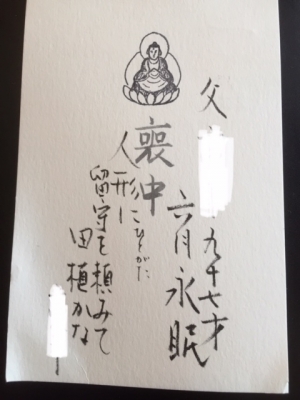 父
九十七才
六月永眠
喪中
人形に
ひとがた
留守を頼みて
田植かな